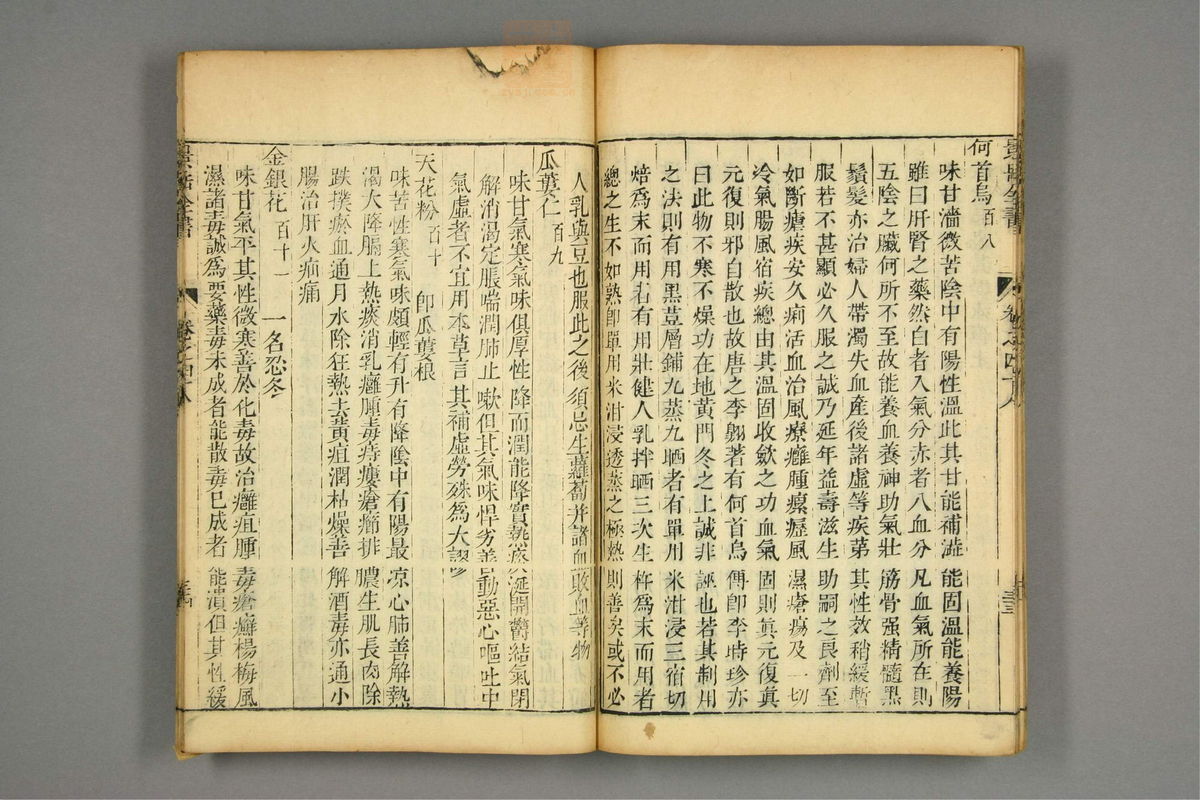 何首烏 百八
味甘濇微苦陰中有陽性溫此其甘能補濇能固溫能養陽
雖曰肝腎之藥然白者入氣分赤者入血分凡血氣所在則
五陰之臟何所不至故能養血養神助氣壯筋骨强精髓黑
鬚髮亦治婦人帶濁失血產後諸虛等疾第其性效稍緩暫
服若不甚顯必久服之誠乃延年益壽滋生助嗣之良劑至
如斷瘧疾安久痢活血治風療癰腫瘰癧風濕瘡瘍及一切
冷氣腸風宿疾總由其溫固收斂之功血氣固則眞元復眞
元復則邪自散也故唐之李翺著有何首烏傳卽李時珍亦
曰此物不寒不燥功在地黃門冬之上誠非誣也若其制用
之法則有用黑荳層鋪九蒸九晒者有單用米泔浸三宿切
焙爲末而用者有用壯健人乳拌晒三次生杵爲末而用者
總之生不如熟卽單用米泔浸透蒸之極熱則善矣或不必
人乳與豆也服此之後須忌生蘿蔔并諸血敗血等物
瓜蔞仁 百九
味甘氣寒氣味俱厚性降而潤能降實熱痰涎開鬱結氣閉
解消渴定脹喘潤肺止嗽但其氣味悍劣善動惡心嘔吐中
氣虛者不宜用本草言其補虛勞殊爲大謬
天花粉 百十 卽瓜蔞根
味苦性寒氣味頗輕有升有降陰中有陽最凉心肺善解熱
渴大降膈上熱痰消乳癰腫毒痔瘻瘡癤排膿生肌長肉除
跌撲瘀血通月水除狂熱去黃疸潤枯燥善解酒毒亦通小
腸治肝火疝痛
金銀花 百十一 一名忍冬
味甘氣平其性微寒善於化毒故治癰疽腫毒瘡癬楊梅風
濕諸毒誠爲要藥毒未成者能散毒已成者能潰但其性緩
景岳全書